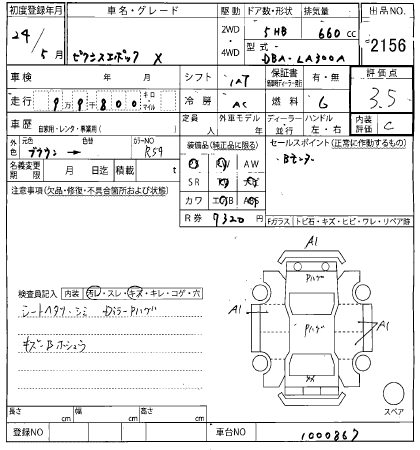 初度登録年月
24年5月
車名・グレード
ピクシスエポック X
駆動
2WD
・
4WD
ドア数・形状
5HB
排気量
660 cc
型式
DBA-LA300A
出品NO.
2156
車検 年 月
シフト IAT
保証書
有・無
評価点
3.5
走行 99,800 キロ・マイル
冷房 AC
燃料 G
車歴 自家用・レンタ・事業用( )
定員 人
外車モデル 年
ディーラー・並行
ハンドル 左・右
内装評価 C
外色
元色 ブラウン → 色替
カラーNO R59
名義変更期限 月 日迄
積載 t
装備品(純正品に限る)
SR
カワ
AW
ナビ
エアB
ABS
R券 9320 円
セールスポイント(正常に作動するもの)
注意事項(欠品・修復・不具合箇所および状態)
Fガラス トビ石・キズ・ヒビ・ワレ・リペア跡
A1
Pハゲ
A1
Pハゲ
A1
スペア
検査員記入 内装 汚レ・スレ・キズ・キレ・コゲ・穴
シートヘタリ・シミ DミラーPハゲ
キズ凹ホシュウ
長さ cm
幅 cm
高さ cm
登録NO
車台NO 1000867